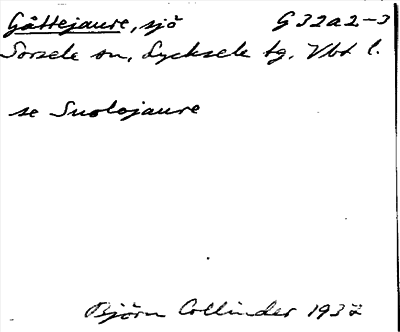 Gåttejaure, sjö G32a2-3
Sorsele sn, Lycksele tg, Vbt l.
se Suolojaure
Björn Collinder 1937